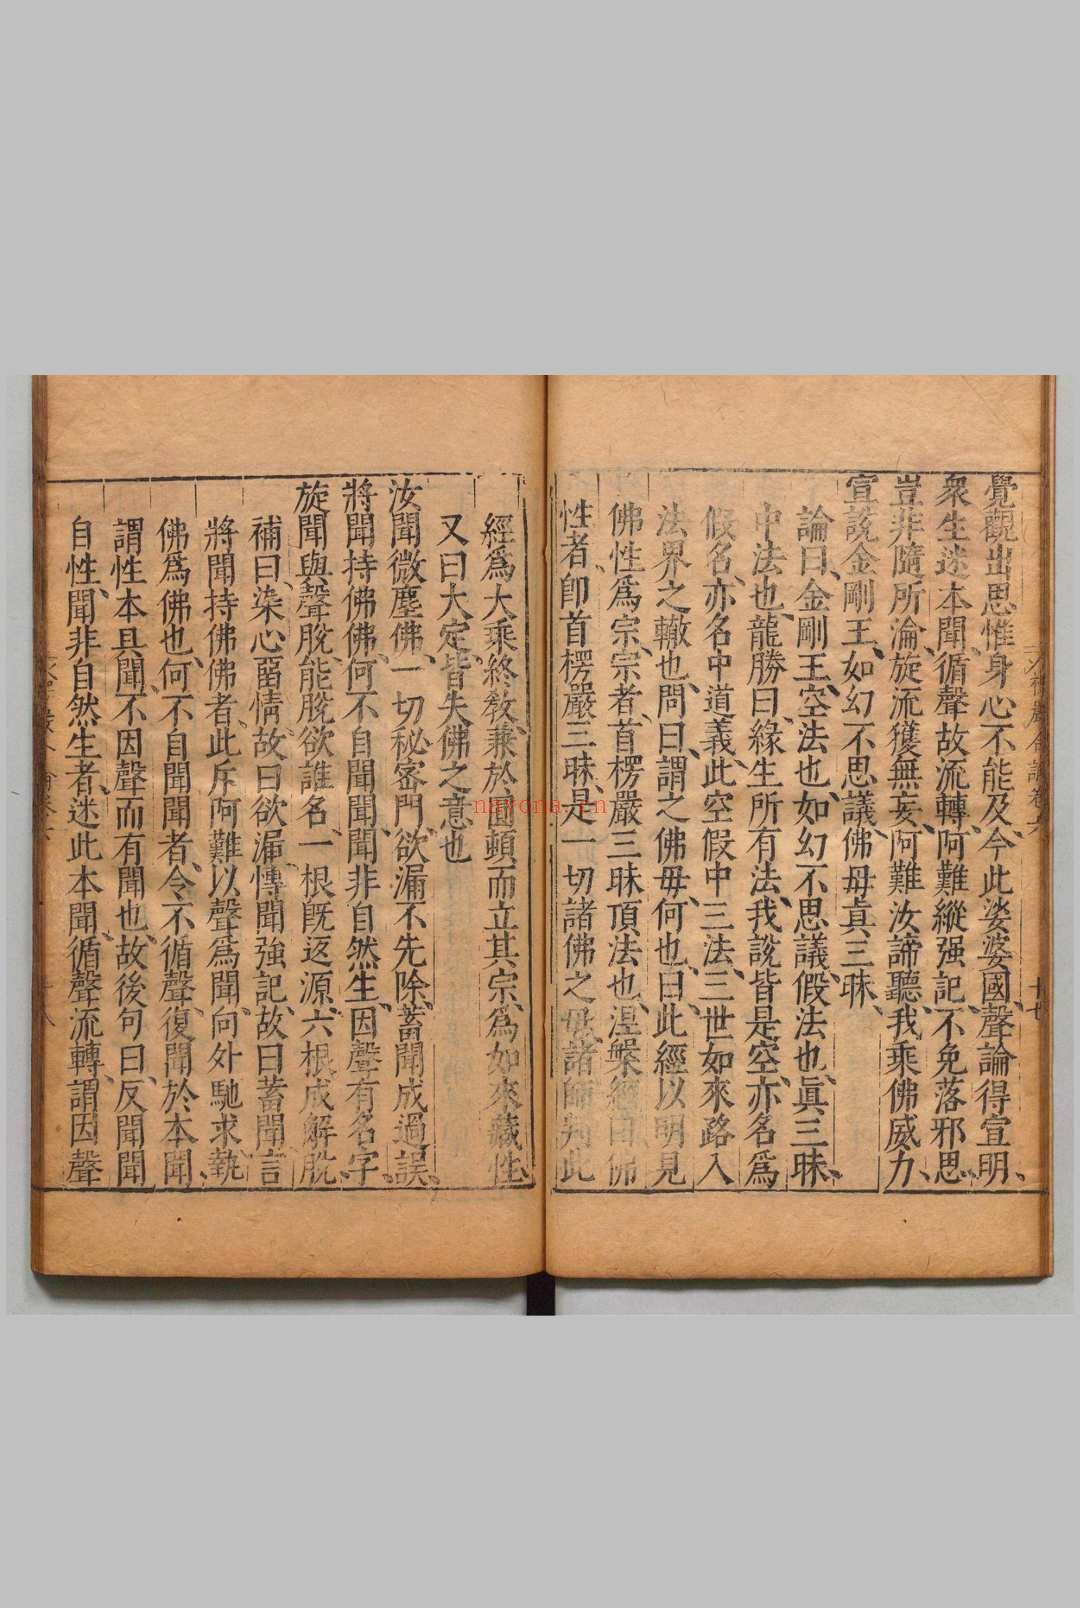 覺觀出思惟身心不能及今此娑婆國聲論得宣明
衆生迷本聞循聲故流轉阿難縱强記不免落邪思
豈非隨所淪旋流獲無妄阿難汝諦聽我乘佛威力
宣說金剛王如幻不思議佛母眞三昧
論曰金剛王空法也如幻不思議假法也眞三昧
中法也龍勝曰緣生所有法我說皆是空亦名爲
假名亦名中道義此空假中三法三世如來路入
法界之轍也問曰謂之佛母何也曰此經以明見
佛性爲宗宗者首楞嚴三昧頂法也涅槃經曰佛
性者卽首楞嚴三昧是一切諸佛之母諸師判此
經爲大乘終敎兼於圓頓而立其宗爲如來藏性
又曰大定皆失佛之意也
汝聞微塵佛一切秘密門欲漏不先除蓄聞成過誤
將聞持佛佛何不自聞聞聞非自然生因聲有名字
旋聞與聲脫能脫欲誰名一根旣返源六根成解脫
補曰染心畱情故曰欲漏愽聞強記故曰蓄聞言
將聞持佛佛者此斥阿難以聲爲聞向外馳求孰
佛爲佛也何不自聞聞者令不循聲復聞於本聞
謂性本具聞不因聲而有聞也故後句曰反聞聞
自性聞非自然生者迷此本聞循聲流轉謂因聲
nayona.cn